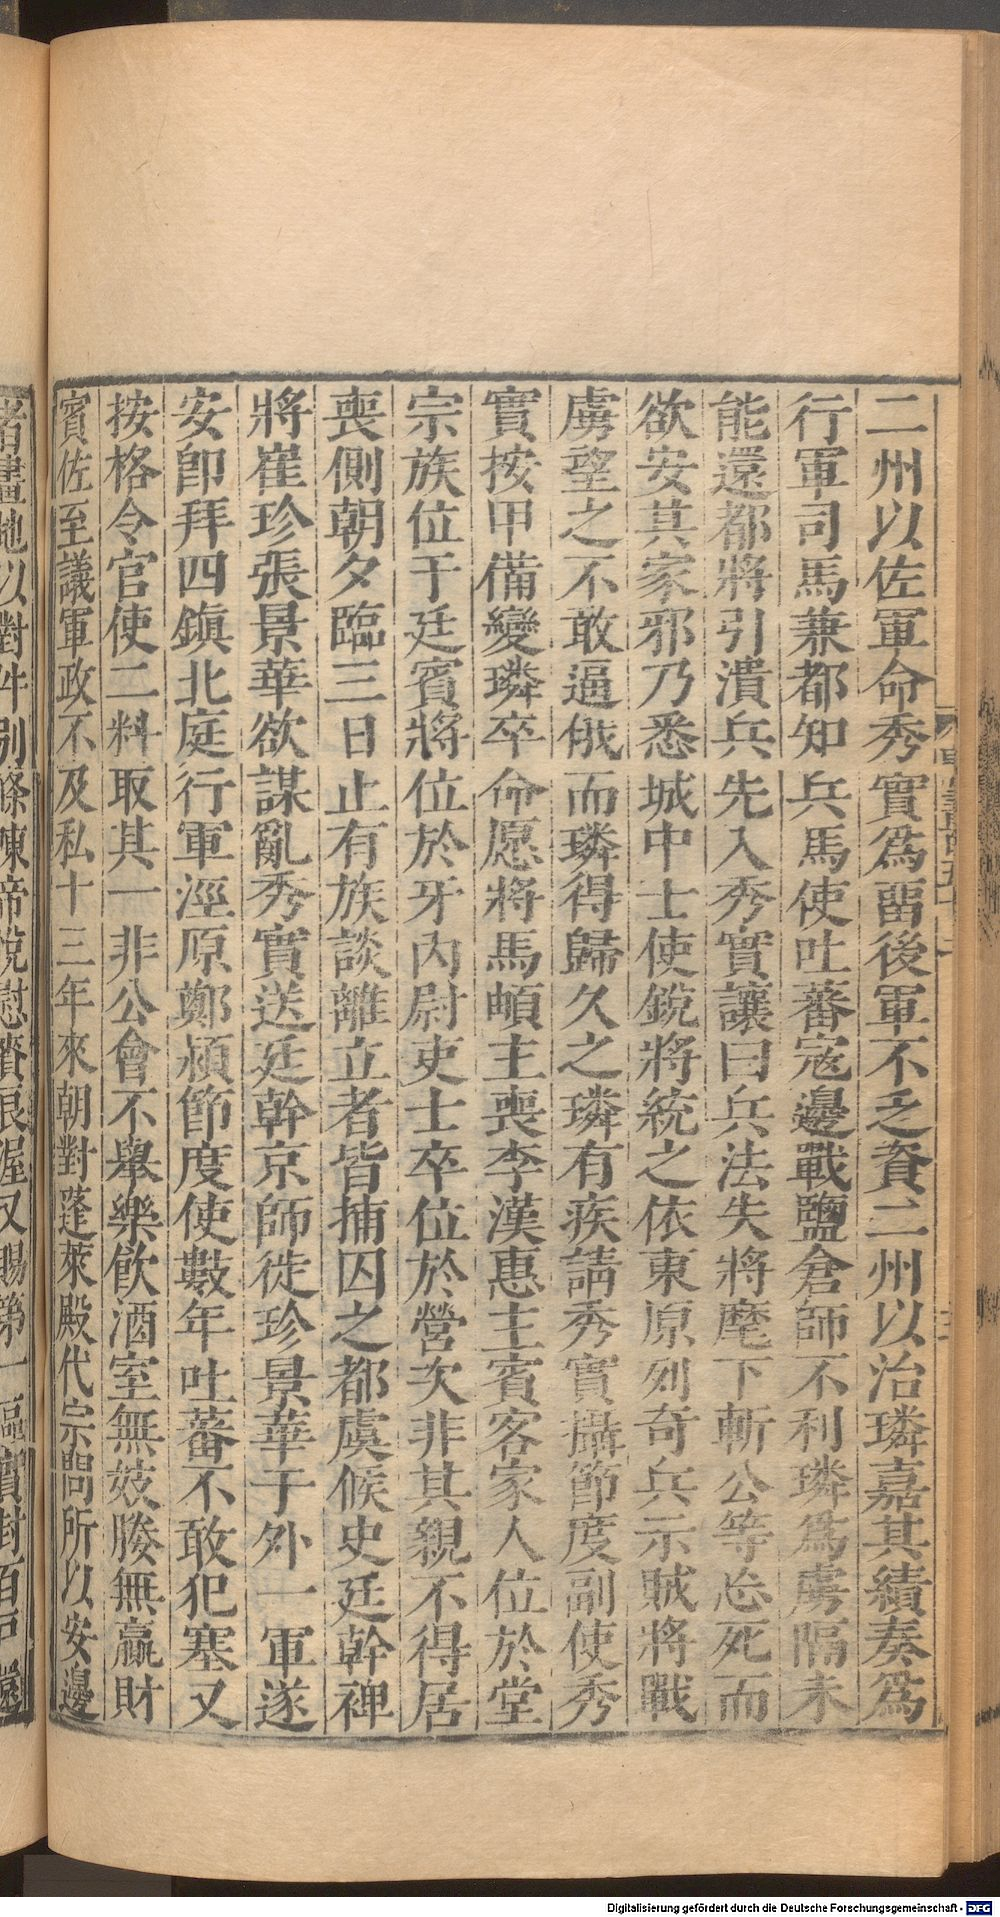 二州以佐軍命秀實爲畱後軍不乏資二州以治璘嘉其績奏爲
行軍司馬兼都知兵馬使吐蕃寇邊戰鹽倉師不利璘爲虜隔未
能還都將引潰兵先入秀實讓曰兵法失將麾下斬公等忘死而
欲安其家邪乃悉城中士使銳將統之依東原列奇兵示賊將戰
虜望之不敢逼俄而璘得歸久之璘有疾請秀實攝節度副使秀
實按甲備變璘卒命愿將馬頔主喪李漢惠主賓客家人位於堂
宗族位于廷賓將位於牙內尉吏士卒位於營次非其親不得居
喪側朝夕臨三日止有族談離立者皆捕囚之都虞候史廷幹裨
將崔珍張景華欲謀亂秀實送廷幹京師徙珍景華于外一軍遂
安卽拜四鎮北庭行軍涇原鄭潁節度使數年吐蕃不敢犯塞又
按格令官使二料取其一非公會不舉樂飮酒室無妓媵無贏財
賓佐至議軍政不及私十三年來朝對蓬萊殿代宗問所以安邊
者畫地以對件別條陳帝悅慰賚良渥又賜第一區實封百戶還
Digitalisierung gefördert durch die Deutsche Forschungsgemeinschaft - DFG